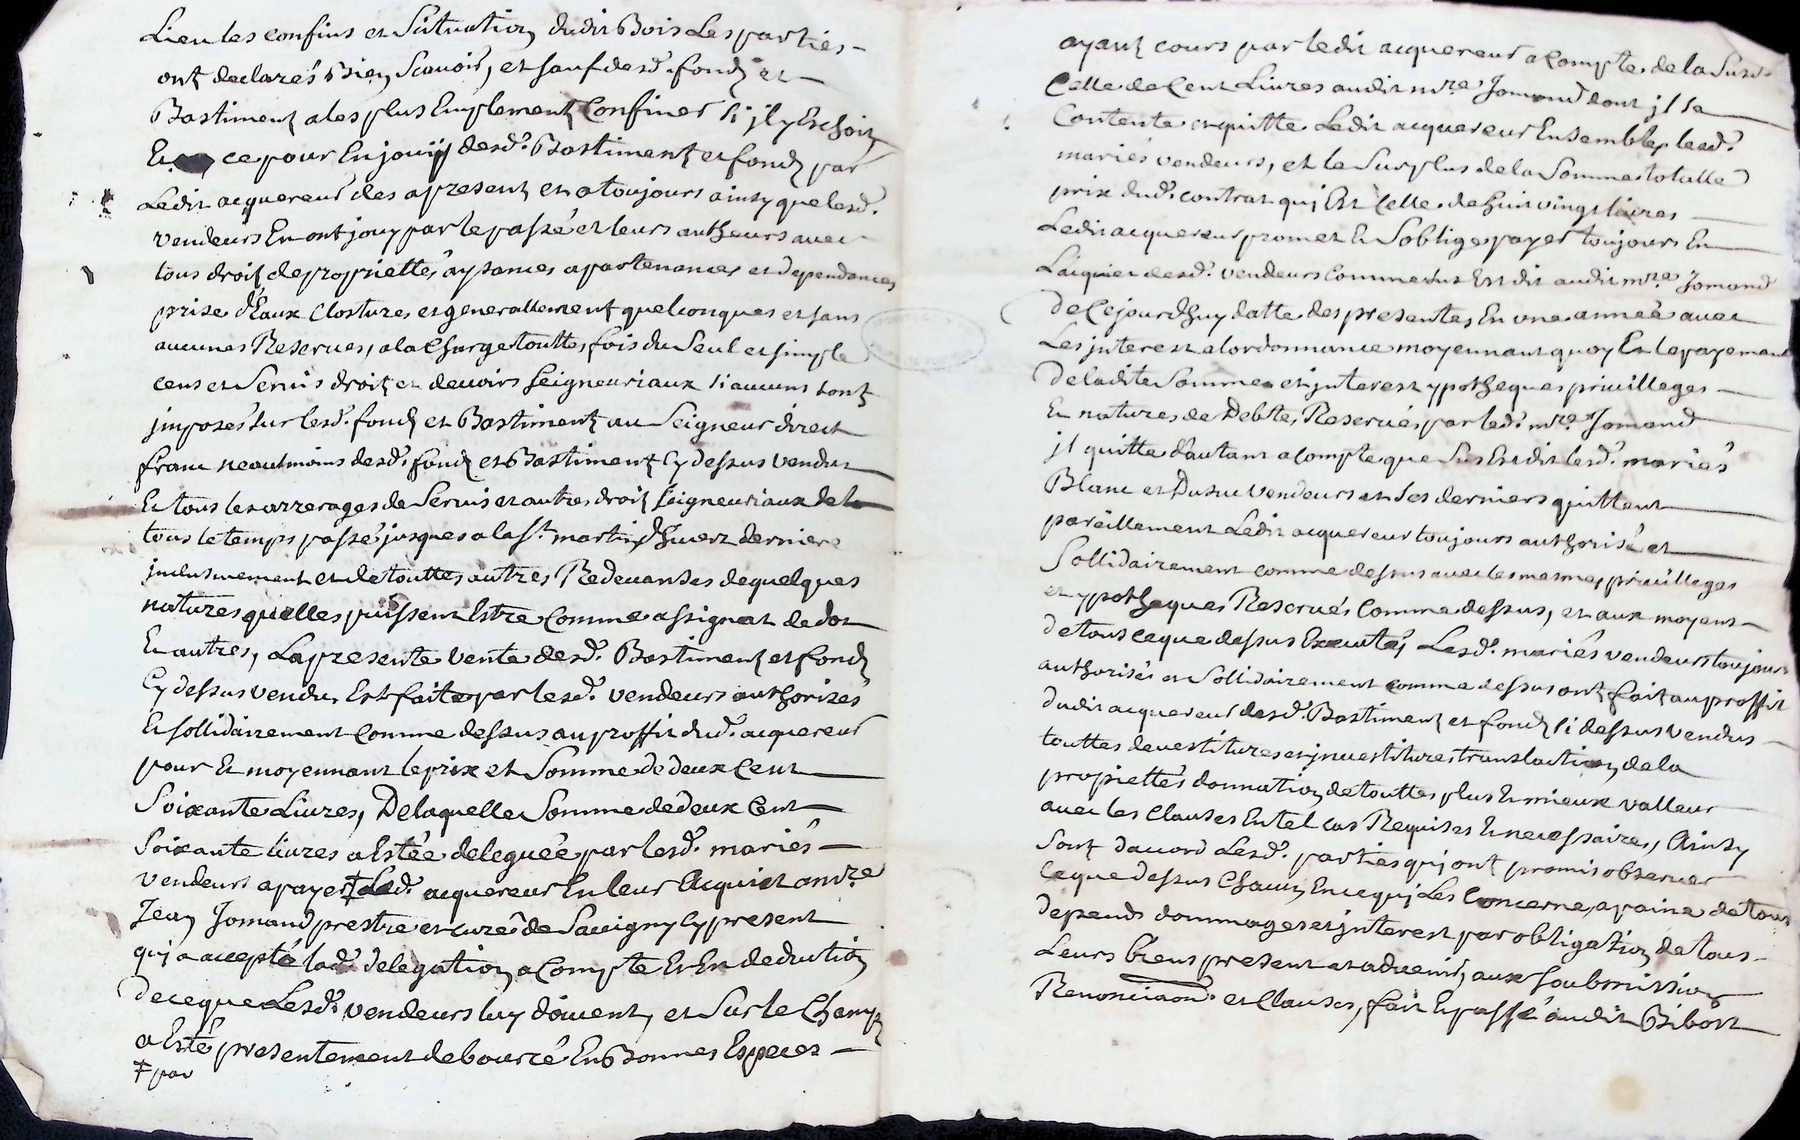 Lieu les confins et Situation dudit Bois Les parties
ont declarés Bien Scavoir, et sauf desd. fondz et
Bastimentz a les plus Emplement Confiner si jl y Eschoit
Et ce pour En jouir desd. Bastimentz et fondz par
Ledit acquereur des apresent et a toujours ainsy que lesd.
vendeurs En ont jouy par le passé et leurs autheurs avec
tous droitz de propriettés aysances apartenances et dependances
prise d'Eaux Clostures et generallement quelconques et sans
aucunes Reserves, a la Charge touttes fois du Seul et simple
cens et Servis droitz et devoirs seigneuriaux si aucuns sont
jmposés sur lesd. fondz et Bastimentz au Seigneur direct
franc neaulmoins desd. fondz et Bastimentz Cy dessus vendus
Et tous les arrerages de Servis et autres droitz seigneuriaux de
tous le temps passé jusques a la St. martin d'hivert derniere
jnclusivement et de touttes autres Redevanses de quelques
natures quelles puissent Estre Comme assignat de dot
Et autres, La presente vente desd. Bastimentz et fondz
Cy dessus vendu, Est faite par lesd. vendeurs authorisés
Et sollidairement Comme dessus au proffit dud. acquereur
pour Et moyennant le prix et Somme de deux Cent
Soixante Livres, De laquelle Somme de deux Cent
Soixante livres a Estée deleguée par lesd. mariés
vendeurs a payer ‡ Led. acquereur En leur Acquit a mre
Jean Jomand prestre et curé de Savigny Cy present
qui a accepté lad. delegation a Compte Et En deduction
de ce que Lesd. vendeurs luy doivent, et Sur le Champ
a Esté presentement debourcé En Bonnes Especes
‡ par
ayant cours par ledit acquereur a Compte de la Susd.
Celle de Cent Livres audit mre Jomand dont jl se
Contente en quitte Ledit acquereur Ensembles lesd.
mariés vendeurs, et le Surplus de la Somme totalle
prix dud. contrat qui Est Celle de huit vingt livres
Ledit acquereur promet Et S'oblige payer toujours En
L'aquict desd. vendeurs Comme sus Est dit audit mre Jomand
de Cejourd'huy datte des presentes En une année avec
Les jnterest a l'ordonnance moyennant quoy Et le payement
De ladite Somme et jnterest ypotheques privilleges
Et natures de Debtes Reservés par led. mre Jomand
jl quitte d'autant a Compte que Sus Est dit lesd. mariés
Blanc et Dusuc vendeurs et Ses derniers quittent
pareillement Ledit acquereur toujours authorisé et
Sollidairement comme dessus avec les mesmes privilleges
et ypotheques Reservés Comme dessus, et aux moyens
de tous ce que dessus Executés Lesd. mariés vendeurs toujours
authorisés et Sollidairement comme dessus ont fait au proffit
dudit acquereur desd. Bastimentz et fondz si dessus vendus
touttes devestitures et jnvestitures translaction de la
propriettés donnation de touttes plus Et mieux valleur
avec les Clauses En tel cas Requises Et necessaires, Ainsy
Sont d'accord Lesd. parties qui ont promis observer
Ce que dessus Chacun En ce qui Les Concerne, a paine de tous
depends dommages et jnterest par obligation de tous
Leurs biens present et advenir, aux soubmission
Renonciaon. et Clauses, fait Et passé audit Bibost